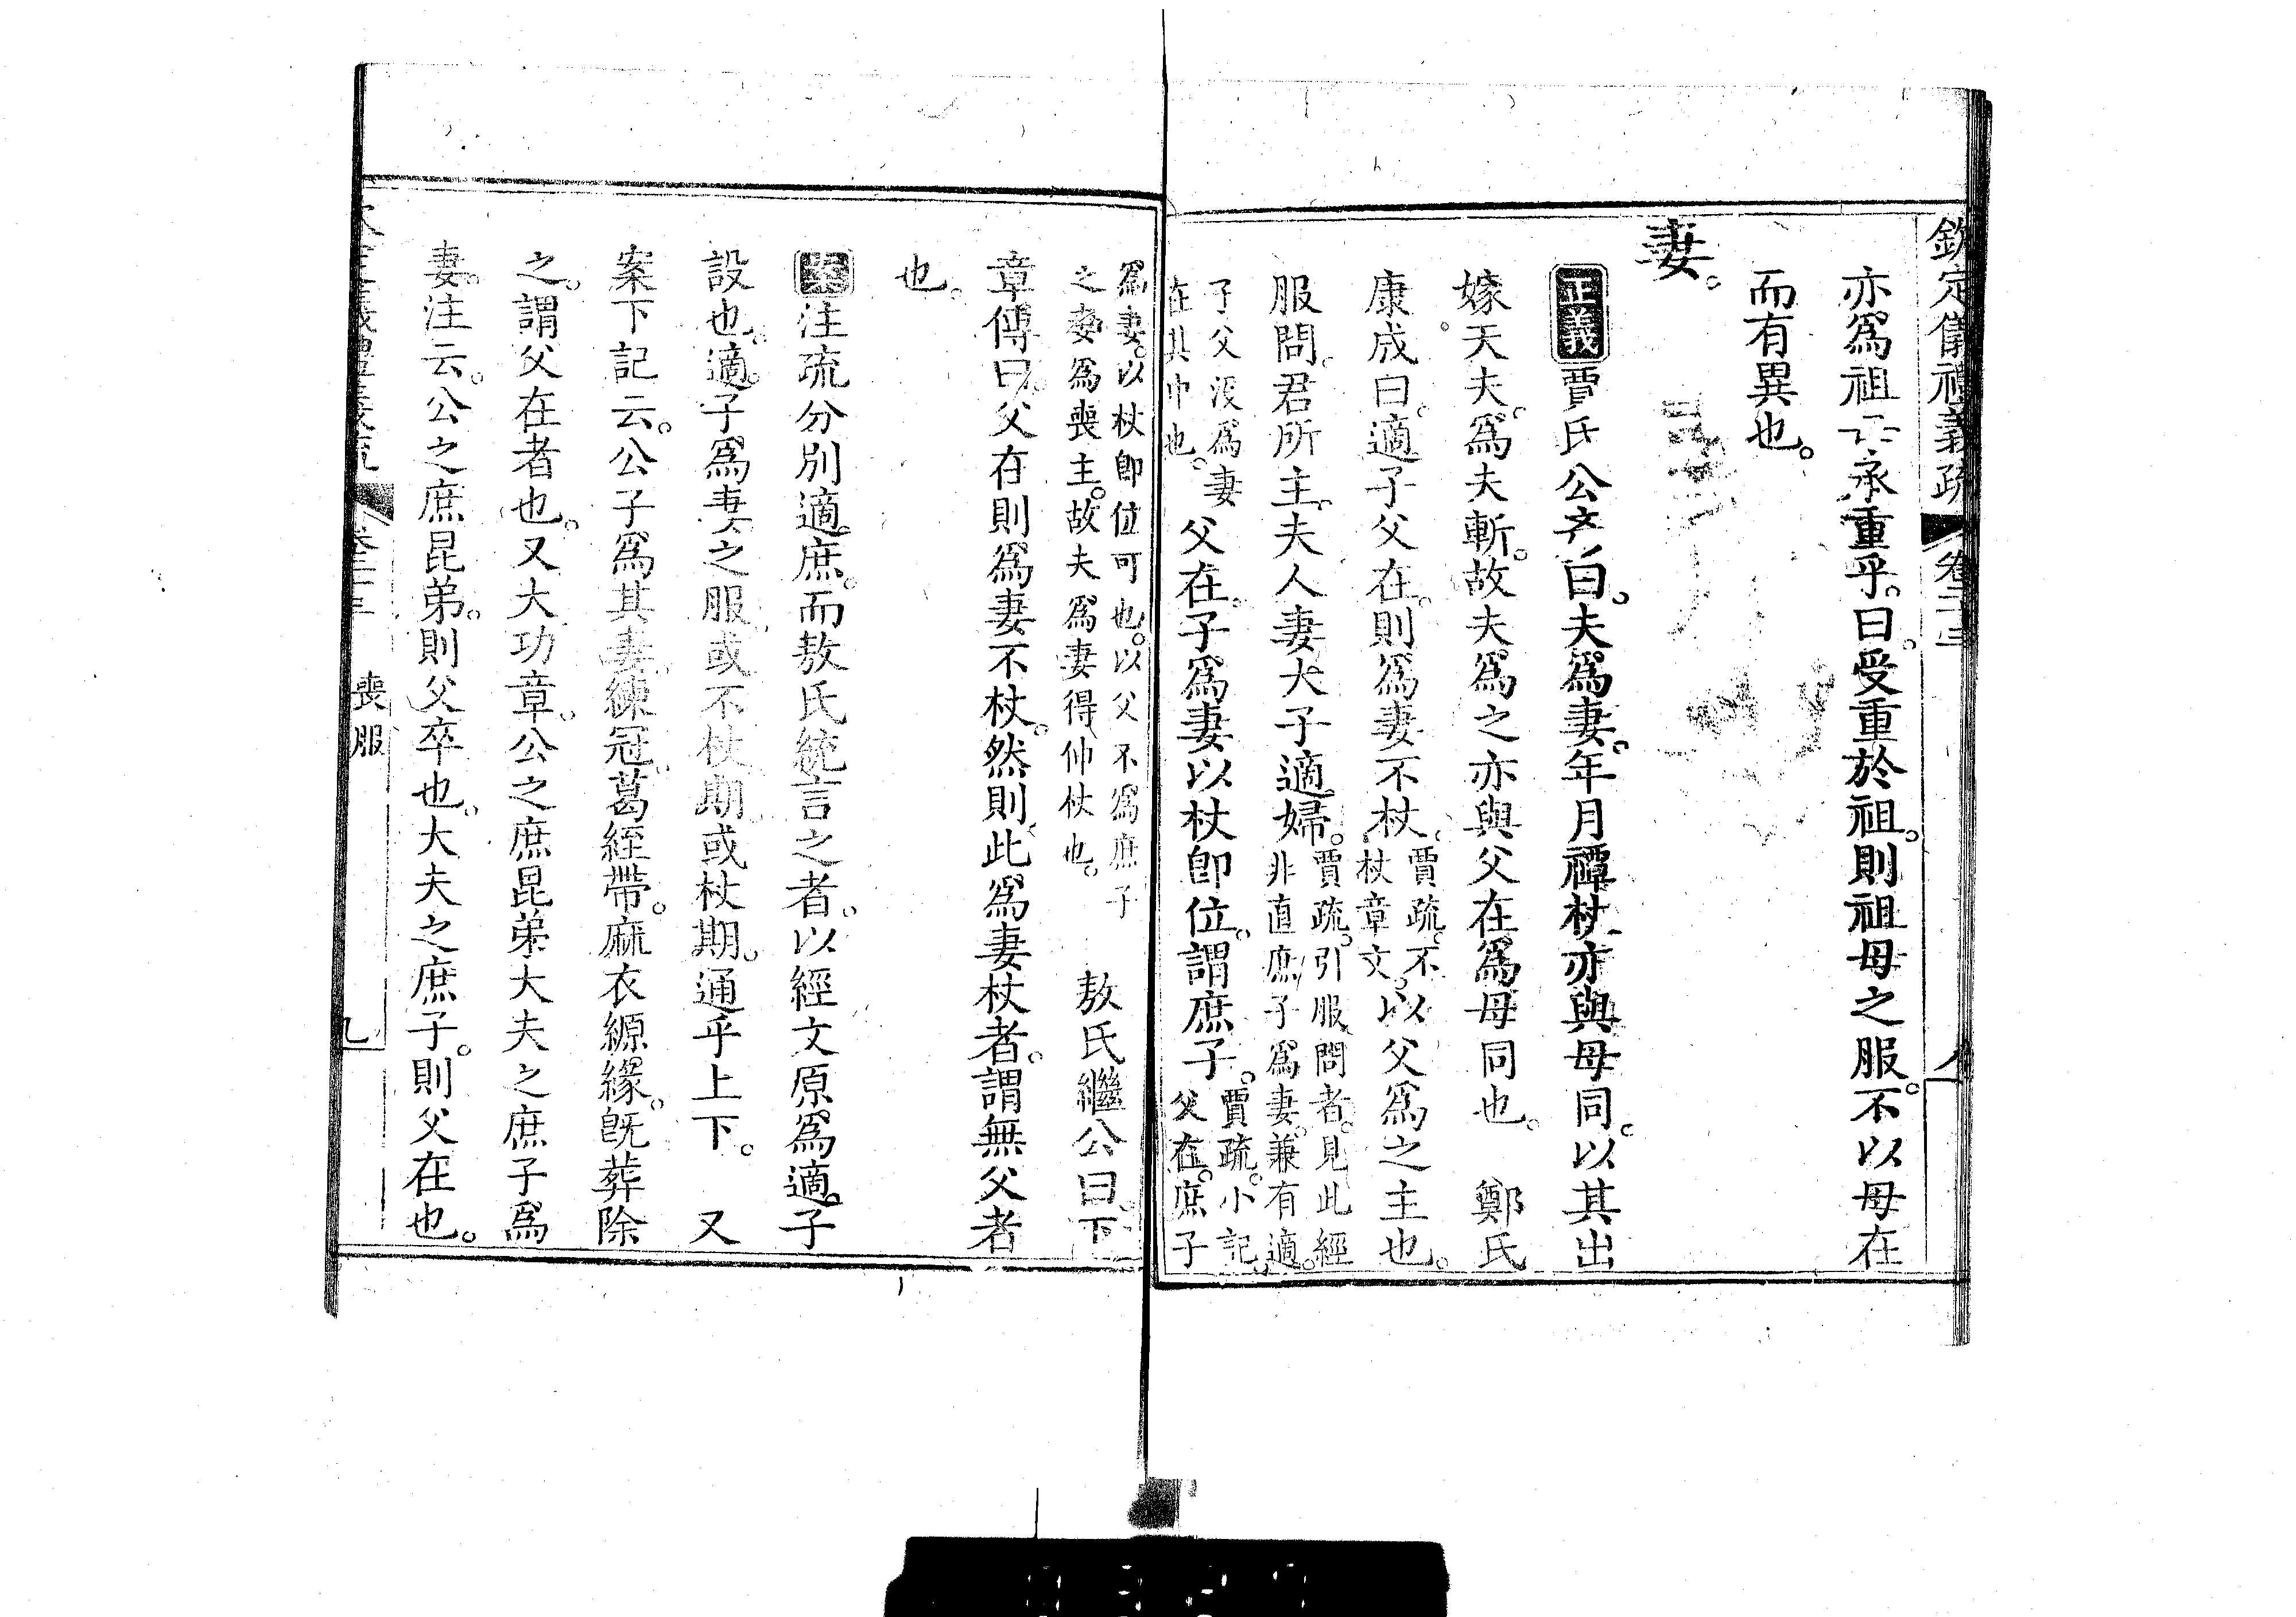 欽定儀禮義疏 卷二十三
亦爲祖 承重乎。曰。受重於祖。則祖母之服。不以母在
而有異也。
妻。
正義賈氏公彥曰。夫爲妻。年月禫杖。亦與母同。以其出
嫁天夫。爲夫斬。故夫爲之亦與父在爲母同也。 鄭氏
康成曰。適子父在。則爲妻不杖。賈疏。不杖章文。以父爲之主也。
服問。君所主。夫人妻大子適婦。賈疏。引服問者。見此經非直庶子爲妻。兼有適
子父沒爲妻在其中也。父在。子爲妻以杖卽位。謂庶子。賈疏。小記。父在。庶子
爲妻。以杖卽位可也。以父不爲庶子之妻爲喪主。故夫爲妻得伸杖也。 敖氏繼公曰。下
章傳曰。父在則爲妻不杖。然則此爲妻杖者。謂無父者
也。
案注疏分別適庶。而敖氏統言之者。以經文原爲適子
設也。適子爲妻之服。或不杖期。或杖期。通乎上下。 又
案下記云。公子爲其妻。練冠。葛絰帶。麻衣縓緣。旣葬除
之。謂父在者也。又大功章。公之庶昆弟大夫之庶子爲
妻。注云。公之庶昆弟。則父卒也。大夫之庶子。則父在也。
喪服